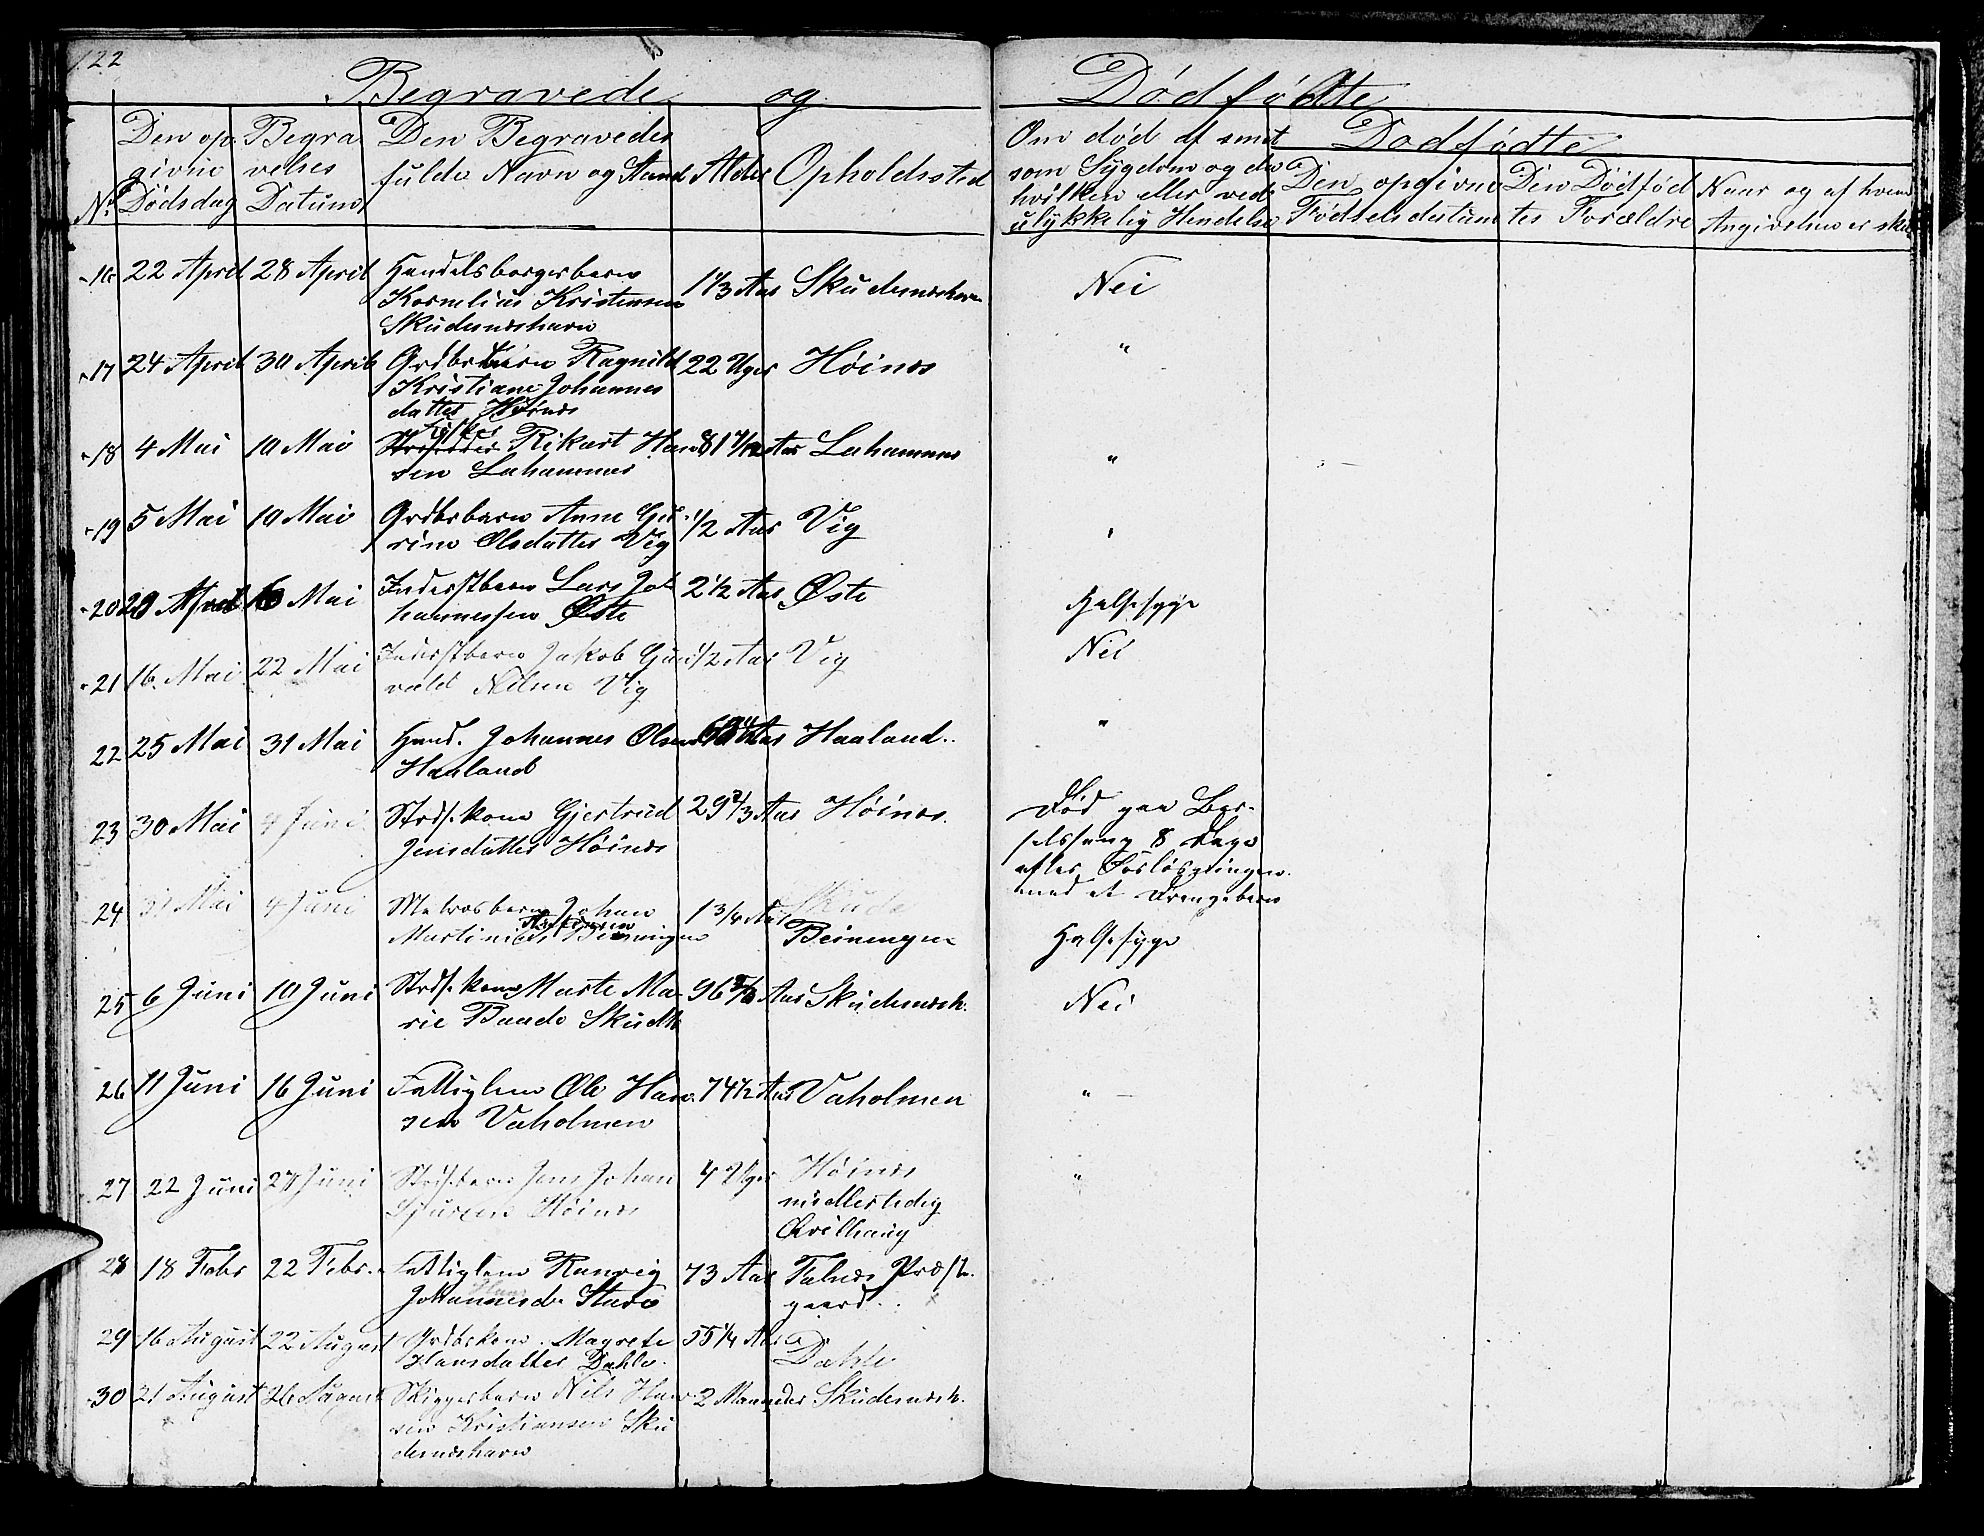 122
Begravede og Dødfødte
Den op Begra Den Begravedes
givne velses fulde Navn og Stand Alder Opholdssted
No Dødsdag Datum
Om død af smit
som Sygdom og da
hvilken eller ved
ulykkelig Hendelse
Dødfødte
Den opgivne Den Dødfød Naar og af hvem
Fødselsdatum tes Forældre Angivelsen er skeet
16 22 April 28 April Handelsborgerbarn 1 1/3 Aar Skudesneshavn Nei
Kornelius Kristensen
Skudesneshavn
17 24 April 30 April Grdbrbarn Ragnild 22 Uger Høines "
Kristiane Johannes
datter Høines
Fisker
18 4 Mai 10 Mai Rikart Han 81 Aar Lahammer "
sen Lahammer
19 5 Mai 10 Mai Grdbrbarn Anne Gu 1/2 Aar Vig "
rine Olsdatter Vig
20 April Mai Inderstbarn Lars Jo 2 1/2 Aar Øste Halssyge
hannessen Øste
21 16 Mai 22 Mai Inderstbarn Jakob Gun 1/2 Aar Vig Nei
vald Nilsen Vig
22 25 Mai 31 Mai Johannes Olsen Aar Haaland "
Haaland
23 30 Mai 4 Juni Strds.kone Gjertrud 29 2/3 Aar Høines Død paa Bar
Jensdatter Høines selsseng 8 Dage
efter Forløsningen
med et Drengebarn
24 31 Mai 4 Juni Matrosbarn Johan 1 3/4 Aar Skude Halssyge
Martinius Beiningen Beiningen
25 6 Juni 10 Juni Strds.kone Marte Ma 96 Aar Skudesnesh. Nei
rie Skudsh
26 11 Juni 16 Juni Fattiglem Ole Han 74 1/2 Aar Vaholmen "
sen Vaholmen
27 22 Juni 27 Juni Strds.barn Jens Johan 4 Uger Høines "
Sjursen Høines midlertidig
Qvilhaug
28 18 Febr 22 Febr. Fattiglem Ranveig 73 Aar Falnes Præste
Johannesd. Stave gaard.
29 16 August 22 August Grdbrkone Magrete 55 1/4 Aar Dahle
Hansdatter Dahle.
30 21 August 26 August Skipperbarn Nils Han 2 Maaneder Skudesnesh.
sen Kristiansen Sku
desneshavn